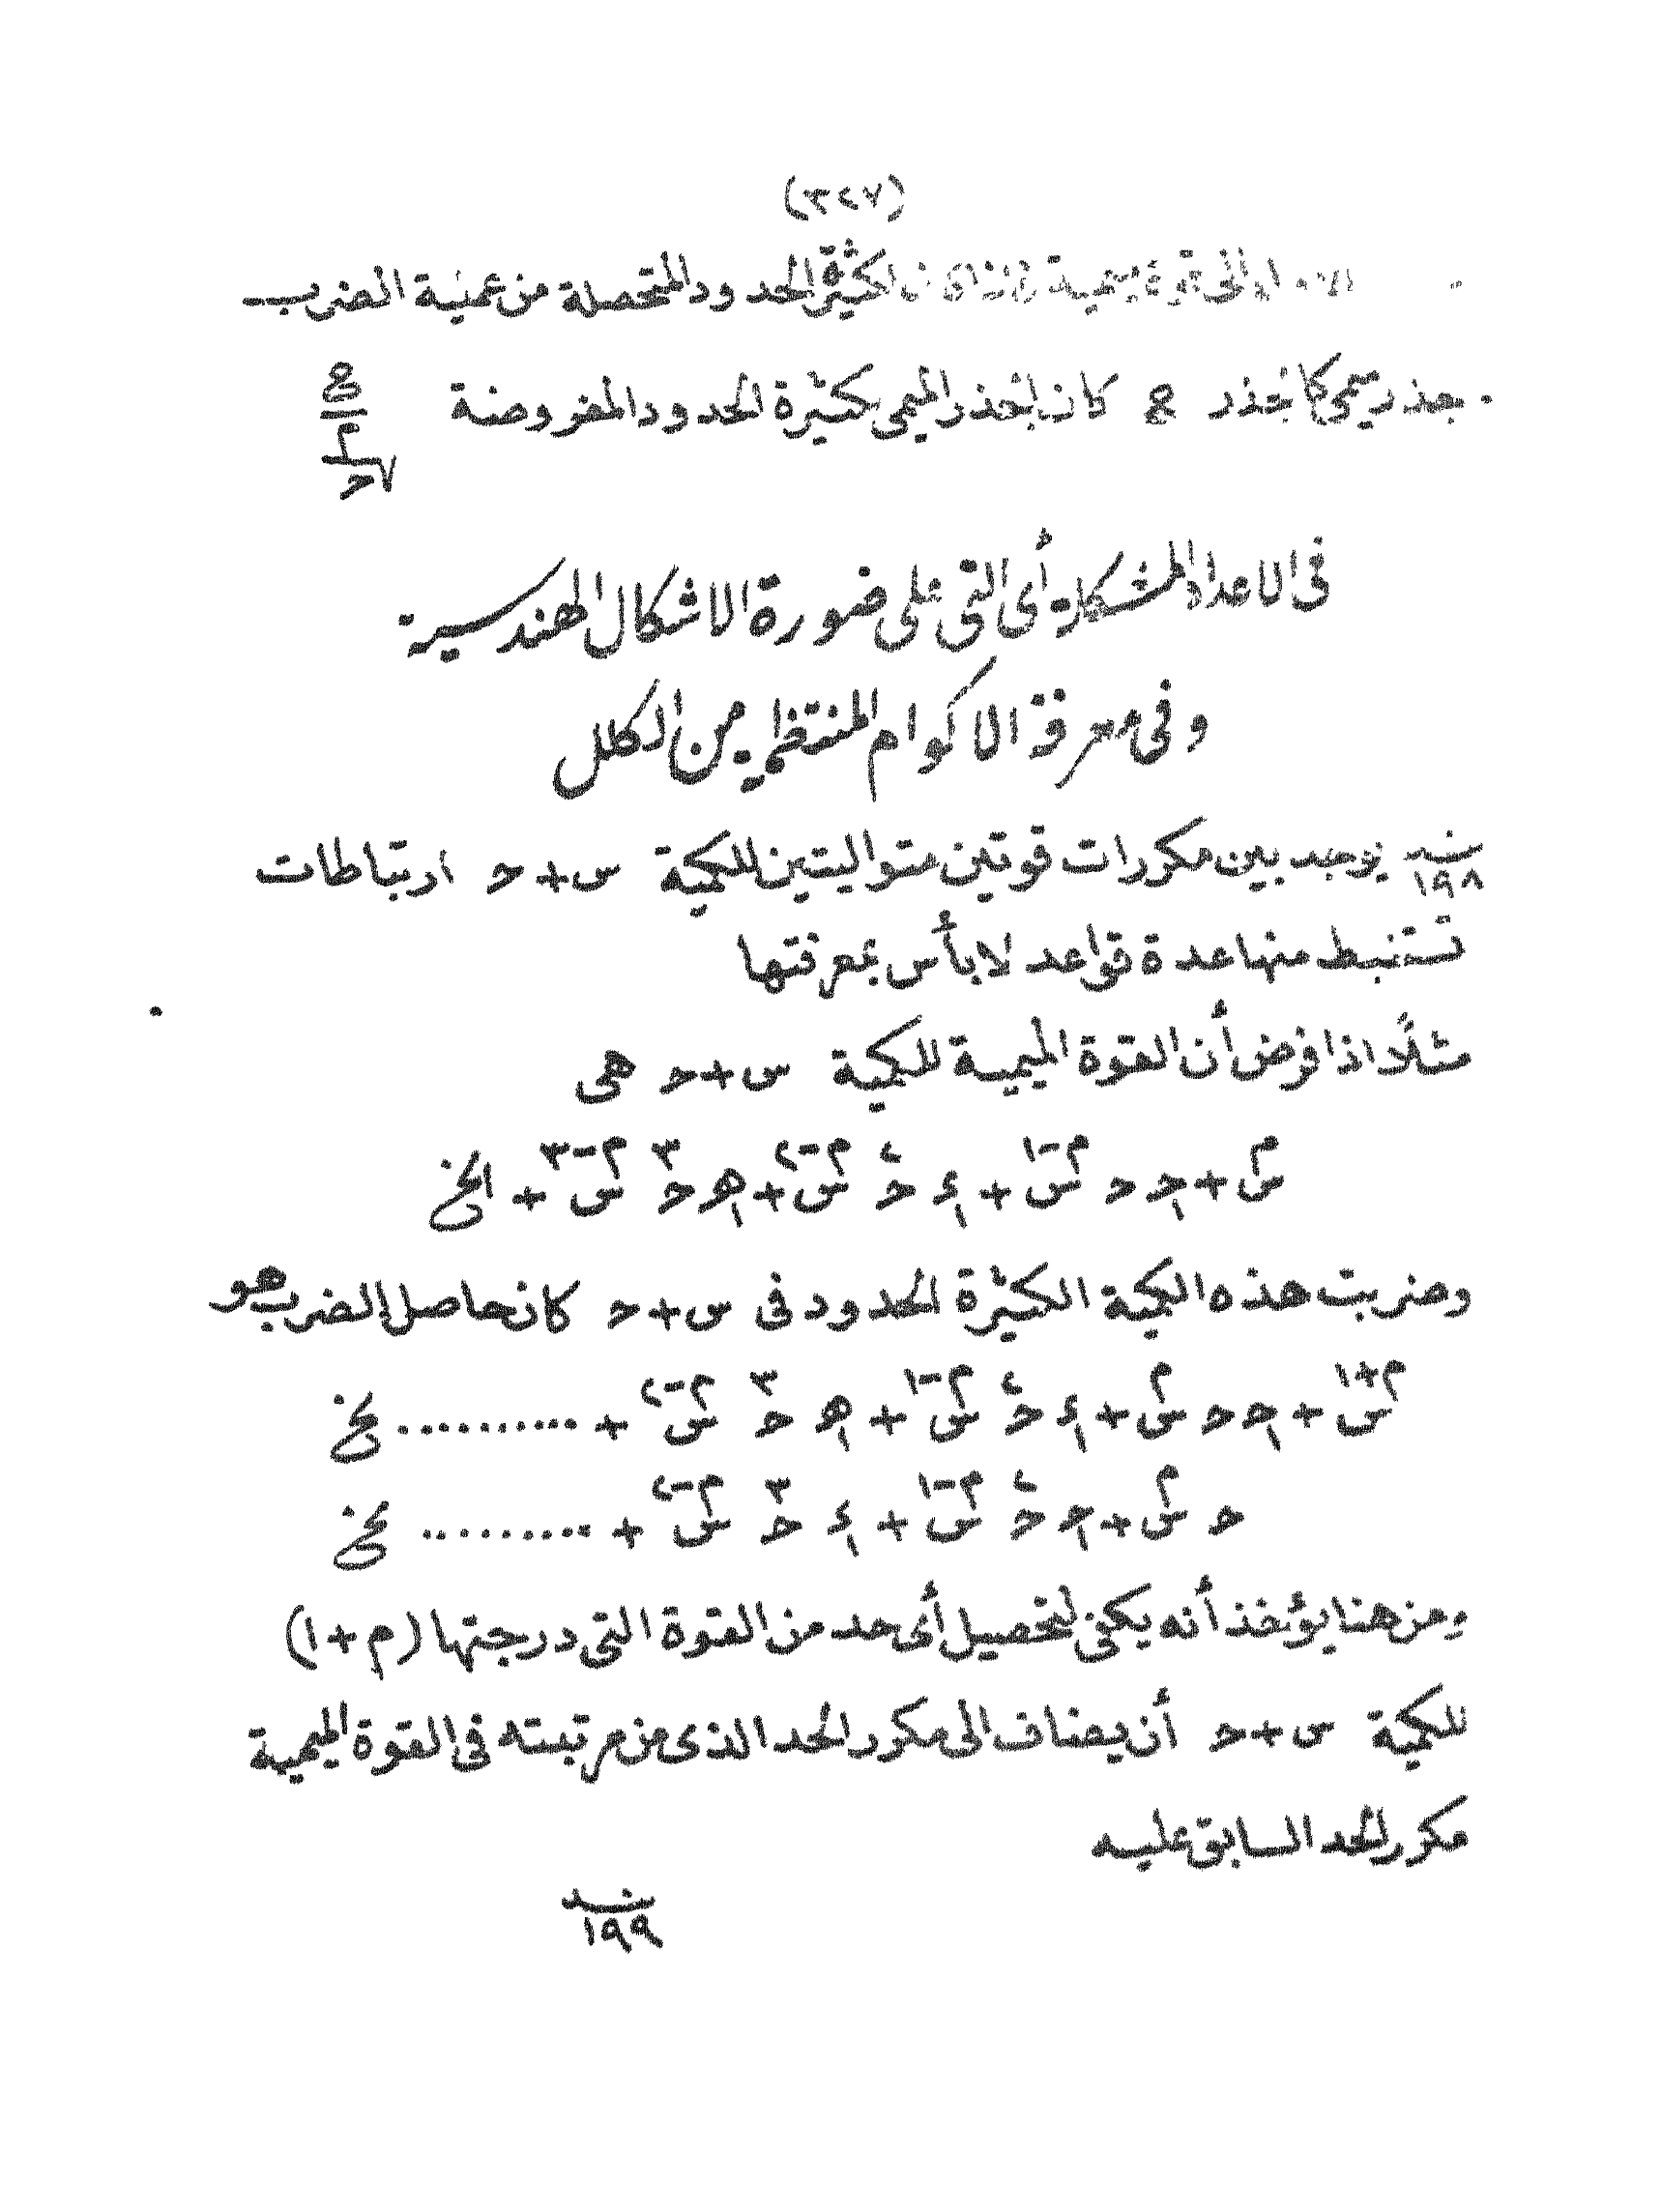 (٣٢٧)
الى قوة ميمية فاذا كان لكثيرة الحدود المتحصلة من عملية الضرب
جذر ميمى كالجذر ع كان الجذر الميمى لكثيرة الحدود المفروضة ع/م√ح
فى الاعداد المتشكلة أى التى على صورة الاشكال الهندسية
وفى معرفة الاكوام المنتظمة من الكلل
بند ١٩٨ يوجد بين مكررات قوتين متواليتين للكمية س+ح ارتباطات
تستنبط منها عدة قواعد لا بأس بمعرفتها
مثلًا اذا فرض أن القوة الميمية للكمية س+ح هى
س^م + جـ ح س^(م-١) + ء ح^٢ س^(م-٢) + هـ ح^٣ س^(م-٣) + الخ
وضربت هذه الكمية الكثيرة الحدود فى س+ح كان حاصل الضرب هو
س^(م+١) + جـ ح س^م + ء ح^٢ س^(م-١) + هـ ح^٣ س^(م-٢) + .......... الخ
ح س^م + جـ ح^٢ س^(م-١) + ء ح^٣ س^(م-٢) + ......... الخ
ومن هنا يؤخذ أنه يكفى لتحصيل أى حد من القوة التى درجتها (م+١)
للكمية س+ح أن يضاف الى مكرر الحد الذى من مرتبته فى القوة الميمية
مكرر الحد السابق عليه
بند ١٩٩